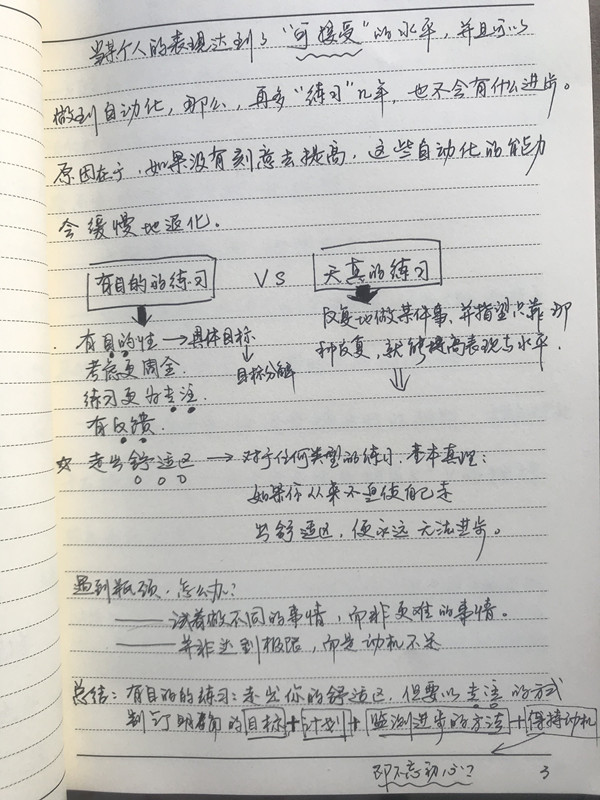 当某个人的表现达到了“可接受”的水平，并且可以
做到自动化，那么，再多“练习”几年，也不会有什么进步。
原因在于，如果没有刻意去提高，这些自动化的能力
会缓慢地退化。
有目的的练习 VS 天真的练习
反复地做某件事，并指望只靠那
种反复，就能提高表现与水平．
有目的性→具体目标
目标分解
考虑更周全．
练习更为专注．
有反馈．
☆ 走出舒适区 → 对于任何类型的练习．基本真理：
如果你从来不迫使自己走
出舒适区，便永远无法进步。
遇到瓶颈．怎么办？
——试着做不同的事情，而非更难的事情。
——并非达到极限，而是动机不足
总结：有目的的练习：走出你的舒适区，但要以专注的方式
制订明确的目标+计划+监测进步的方法+保持动机
即不忘初心？
3